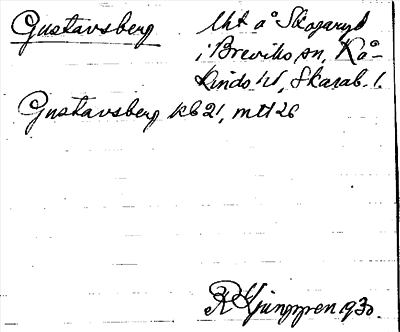 Gustavsberg
Lht å Skogaryd
i Breviks sn, Kå-
kinds hd, Skarab. l.
Gustavsberg kb 21, mtl 26
R Ljunggren 1930.